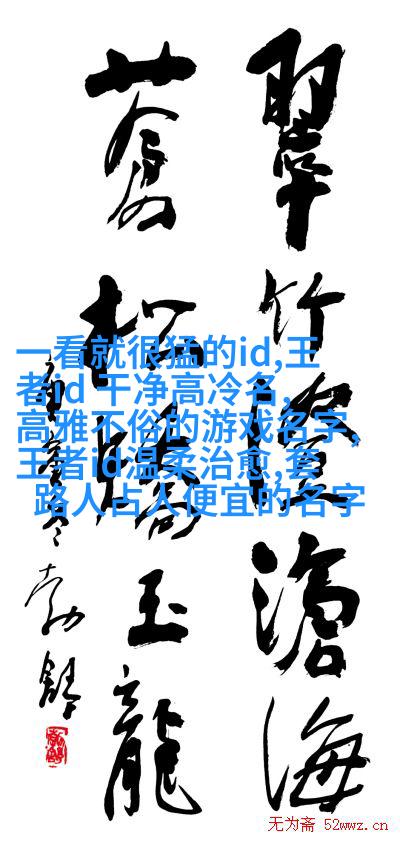 翠竹滄海
蒼松騰玉龍
勃舒
一看就很猛的id,王
者id 干净高冷名,
高雅不俗的游戏名字,
王者id温柔治愈,套
路人占人便宜的名字
无为斋 52wwz.cn